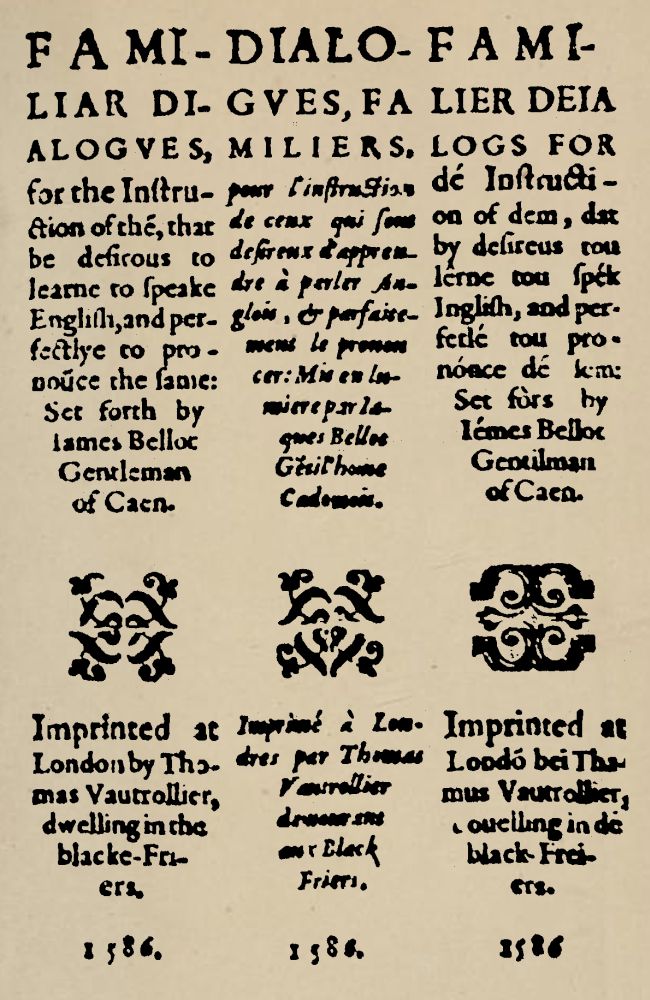 FAMI-
LIAR DI-
ALOGVES,
for the Inſtru-
ction of thē, that
be deſirous to
learne to ſpeake
Engliſh, and per-
fectlye to pro-
noūce the ſame:
Set forth by
Iames Bellot
Gentleman
of Caen.
Imprinted at
London by Tho-
mas Vautrollier,
dwelling in the
blacke-Fri-
ers.
1586.
DIALO-
GVES, FA
MILIERS,
pour l'inſtruction
de ceux qui ſont
deſireux d'appren-
dre à parler An-
glois, & parfaite-
ment le pronon
cer: Mis en lu-
miere par Ia-
ques Bellot
Gētil'home
Cadomois.
Imprimé à Lon-
dres par Thomas
Vautrollier
demourant
aux Black
Friers.
1586.
FAMI-
LIER DEIA
LOGS FOR
dé Inſtructi-
on of dem, dat
by deſireus tou
lérne tou ſpék
Ingliſh, and per-
fetlé tou pro-
nónce dé ſem:
Set fòrs by
Iémes Bellot
Gentilman
of Caen.
Imprinted at
Londó bei Tha-
mus Vautrollier,
ouelling in dé
black-Frei-
ers.
1586